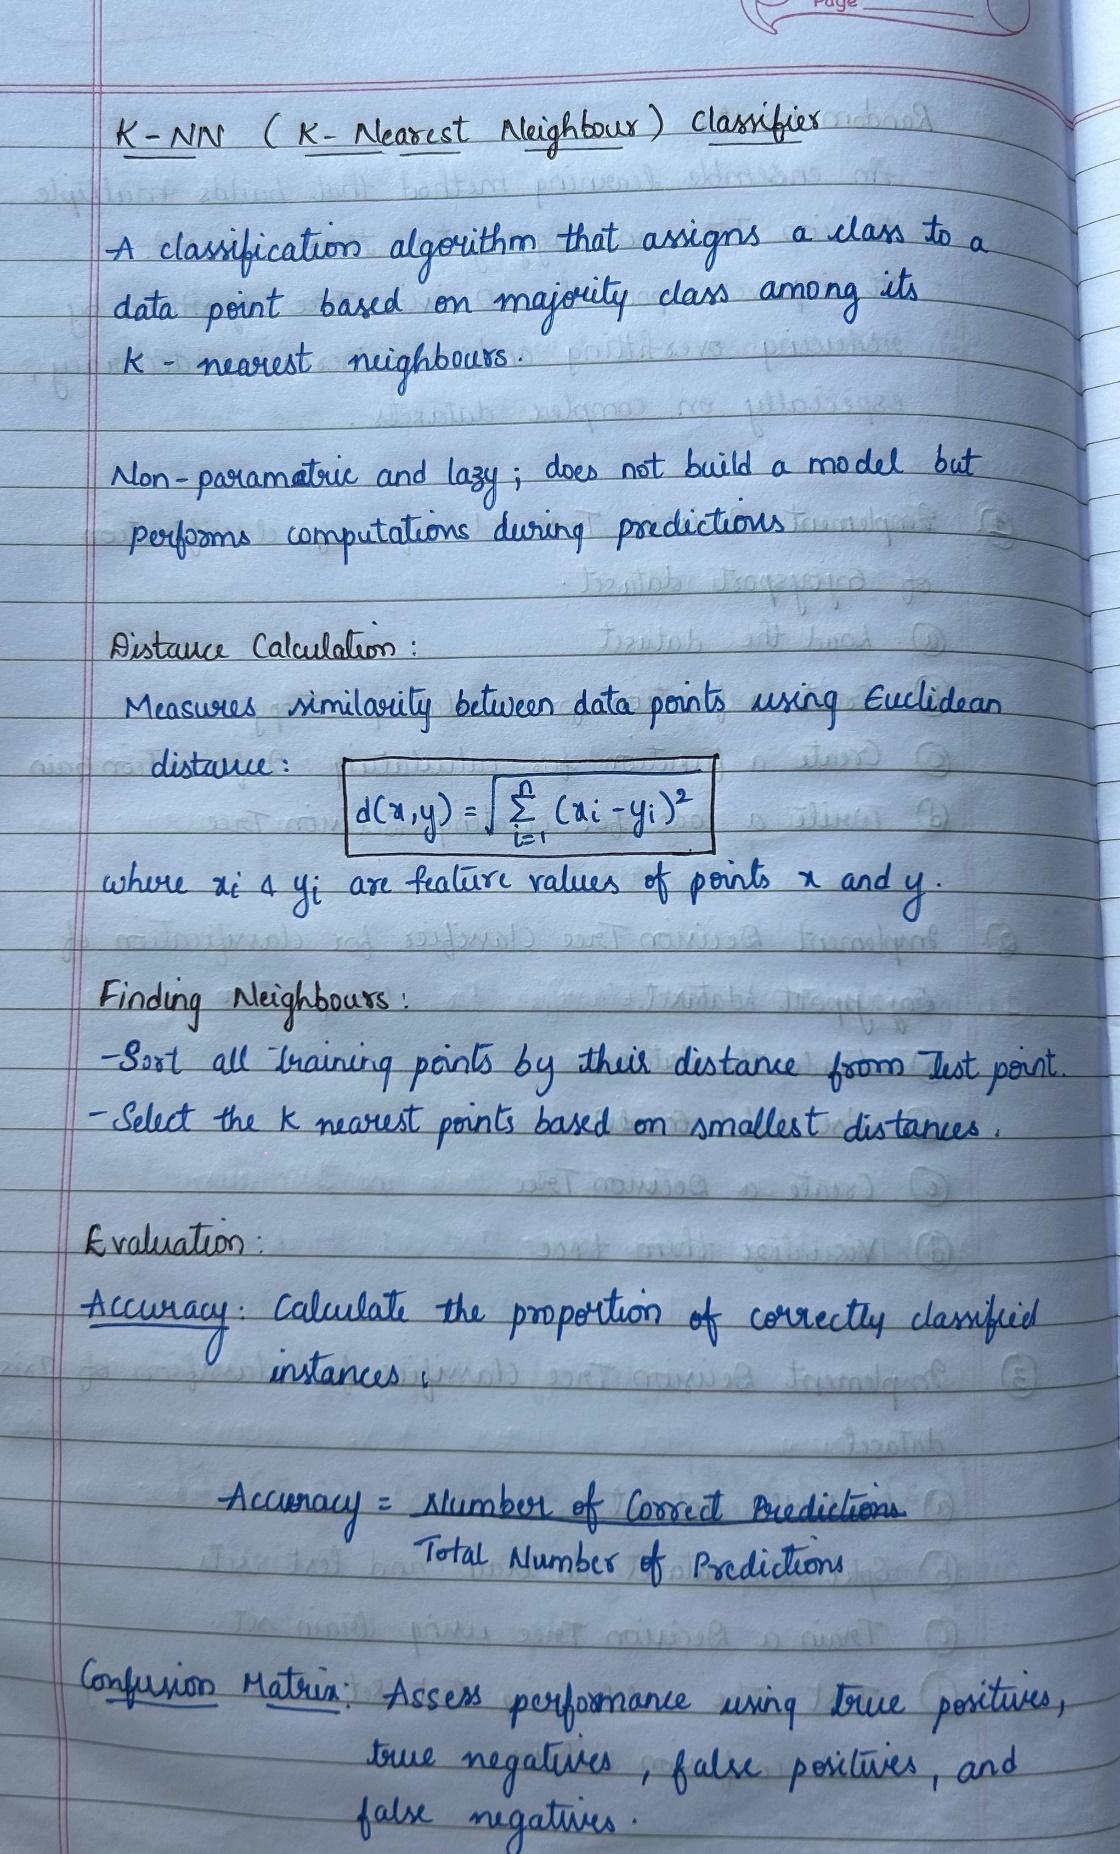 Page
K-NN (K-Nearest Neighbour) Classifier
A classification algorithm that assigns a class to a
data point based on majority class among its
K - nearest neighbours.
Non-parametric and lazy; does not build a model but
performs computations during predictions
Distance Calculation:
Measures similarity between data points using Euclidean
distance:
d(x,y) = √ Σ_{i=1}^{n} (xi - yi)²
where xi & yi are feature values of points x and y.
Finding Neighbours:
-Sort all training points by their distance from Test point.
-Select the K nearest points based on smallest distances.
Evaluation:
Accuracy: Calculate the proportion of correctly classified
instances.
Accuracy = Number of Correct Predictions
Total Number of Predictions
Confusion Matrix: Assess performance using true positives,
true negatives, false positives, and
false negatives.